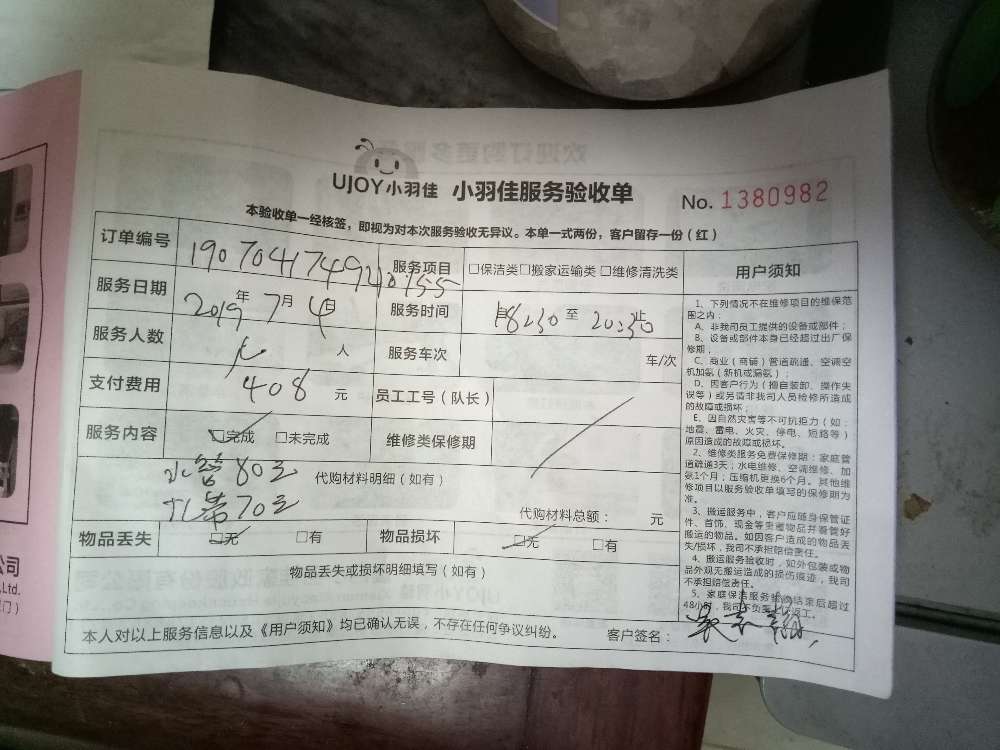 UJOY小羽佳 小羽佳服务验收单 No. 1380982
本验收单一经核签，即视为对本次服务验收无异议。本单一式两份，客户留存一份（红）
订单编号 19070417494 0755 服务项目 □保洁类□搬家运输类□维修清洗类
服务日期 2019年7月4日 服务时间 18:30 至 20:30 止
服务人数 人 服务车次 车/次
支付费用 408 元 员工工号（队长）
服务内容 □完成 □未完成 维修类保修期
水管80元 代购材料明细（如有）
70元
代购材料总额： 元
物品丢失 □无 □有 物品损坏 □无 □有
物品丢失或损坏明细填写（如有）
本人对以上服务信息以及《用户须知》均已确认无误，不存在任何争议纠纷。 客户签名：
用户须知
1、下列情况不在维修项目的维保范
围之内：
A、非我司员工提供的设备或部件；
B、设备或部件本身已经超过出厂保
修期；
C、商业（商铺）管道疏通、空调空
机加氨（新机或漏氨）；
D、因客户行为（擅自装卸、操作失
误等）或另请非我司人员检修所造成
的故障或损坏
E、因自然灾害等不可抗拒力（如：
地震、雷电、火灾、停电、短路等）
原因造成的故障或损坏。
2、维修类服务免费保修期：家庭管
道疏通3天；水电维修、空调维修、加
氨1个月；压缩机更换6个月。其他维
修项目以服务验收单填写的保修期为
准。
3、搬运服务中，客户应随身保管证
件、首饰、现金等贵重物品并看管好
搬运的物品。如因客户造成的物品丢
失/损坏，我司不承担赔偿责任。
4、搬运服务验收时，如外包装或物
品外观无搬运造成的损伤痕迹，我司
不承担赔偿责任。
5、家庭保洁服务 结束后超过
48小时，我司不负责 返工。
公司
,Ltd.
门）